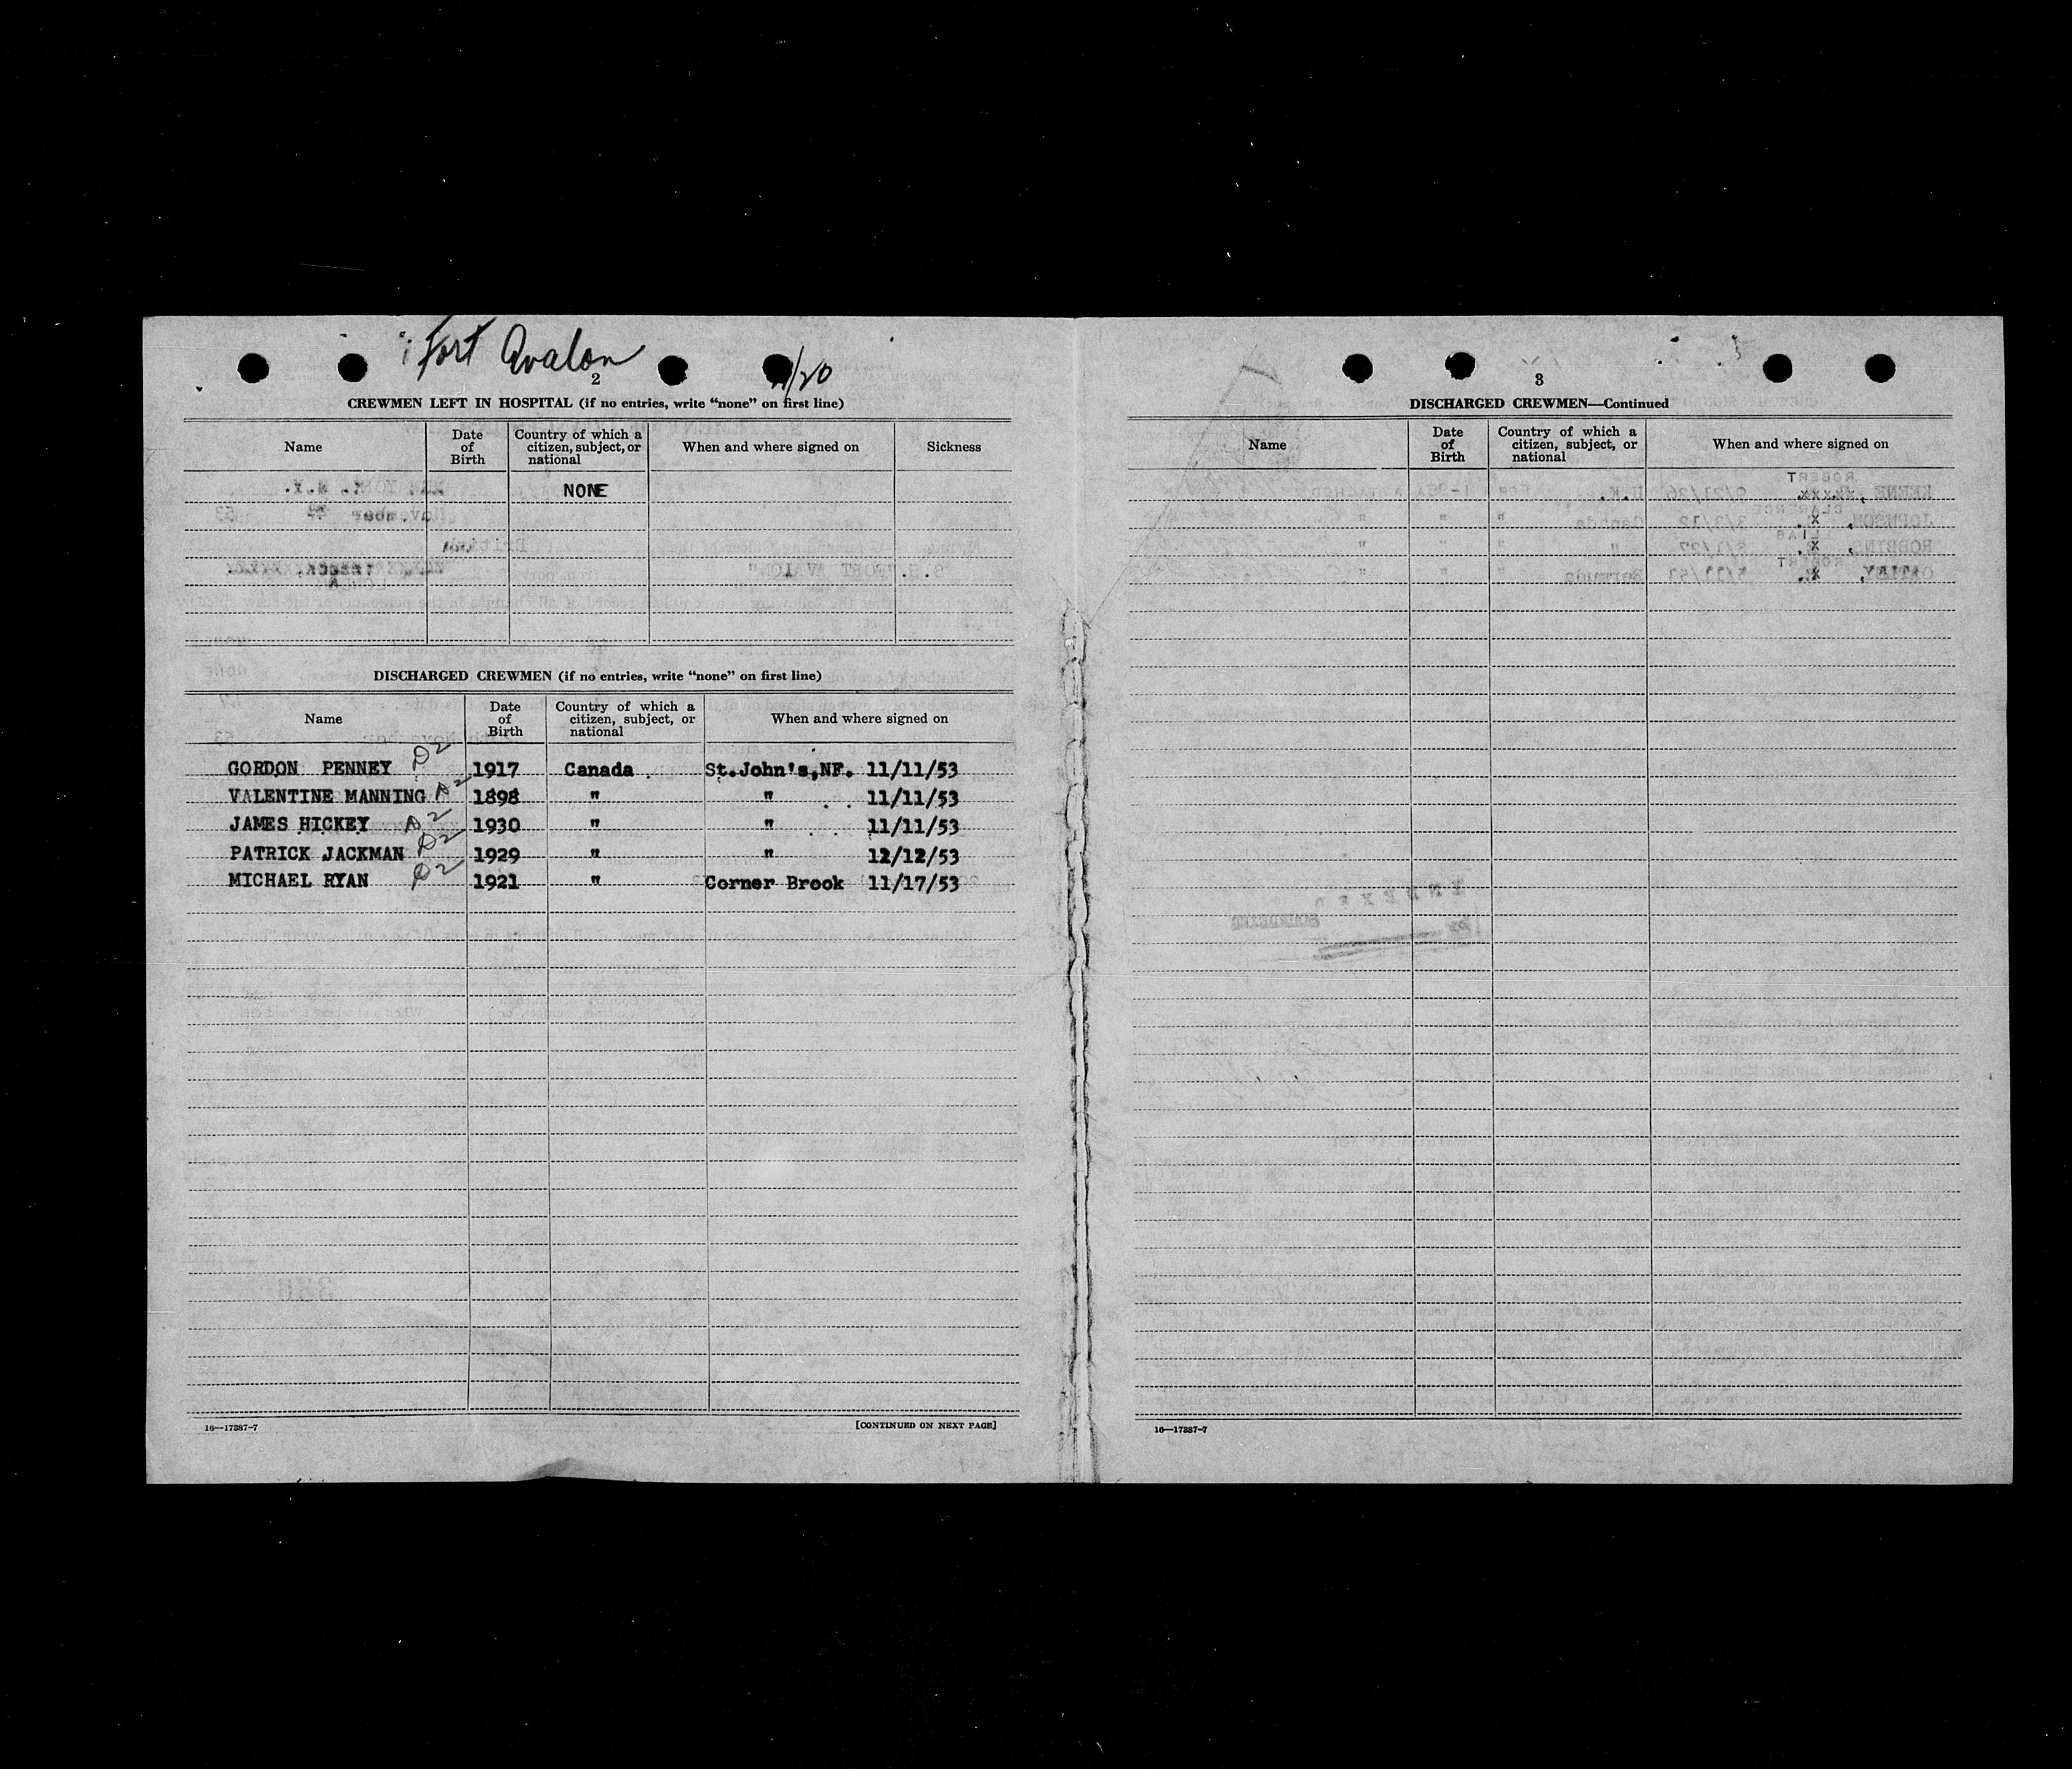 Fort Avalon
11/20
2
CREWMEN LEFT IN HOSPITAL (if no entries, write “none” on first line)
Name Date of Birth Country of which a citizen, subject, or national When and where signed on Sickness
NONE
DISCHARGED CREWMEN (if no entries, write “none” on first line)
Name Date of Birth Country of which a citizen, subject, or national When and where signed on
GORDON PENNEY D2 1917 Canada St.John's,NF. 11/11/53
VALENTINE MANNING D2 1898 " " 11/11/53
JAMES HICKEY D2 1930 " " 11/11/53
PATRICK JACKMAN D2 1929 " " 12/12/53
MICHAEL RYAN D2 1921 " Corner Brook 11/17/53
16—17387-7 [CONTINUED ON NEXT PAGE]
3
DISCHARGED CREWMEN—Continued
Name Date of Birth Country of which a citizen, subject, or national When and where signed on
16—17387-7